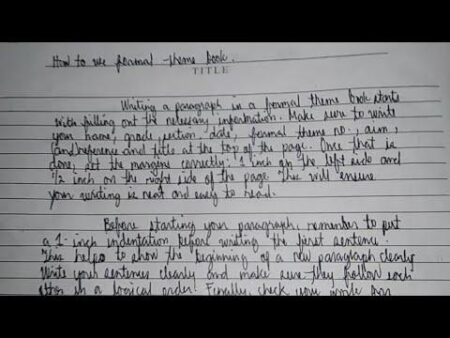 How to use formal theme book.
TITLE
Writing a paragraph in a formal theme book starts
with filling out the necessary information. Make sure to write
your name, grade, section, date, formal theme no., aim,
(and) reference and title at the top of the page. Once that is
done, set the margins correctly: 1 inch on the left side and
1/2 inch on the right side of the page. This will ensure
your writing is neat and easy to read.
Before starting your paragraph, remember to put
a 1-inch indentation before writing the first sentence.
This helps to show the beginning of a new paragraph clearly.
Write your sentences clearly and make sure they follow each
other in a logical order. Finally, check your work for